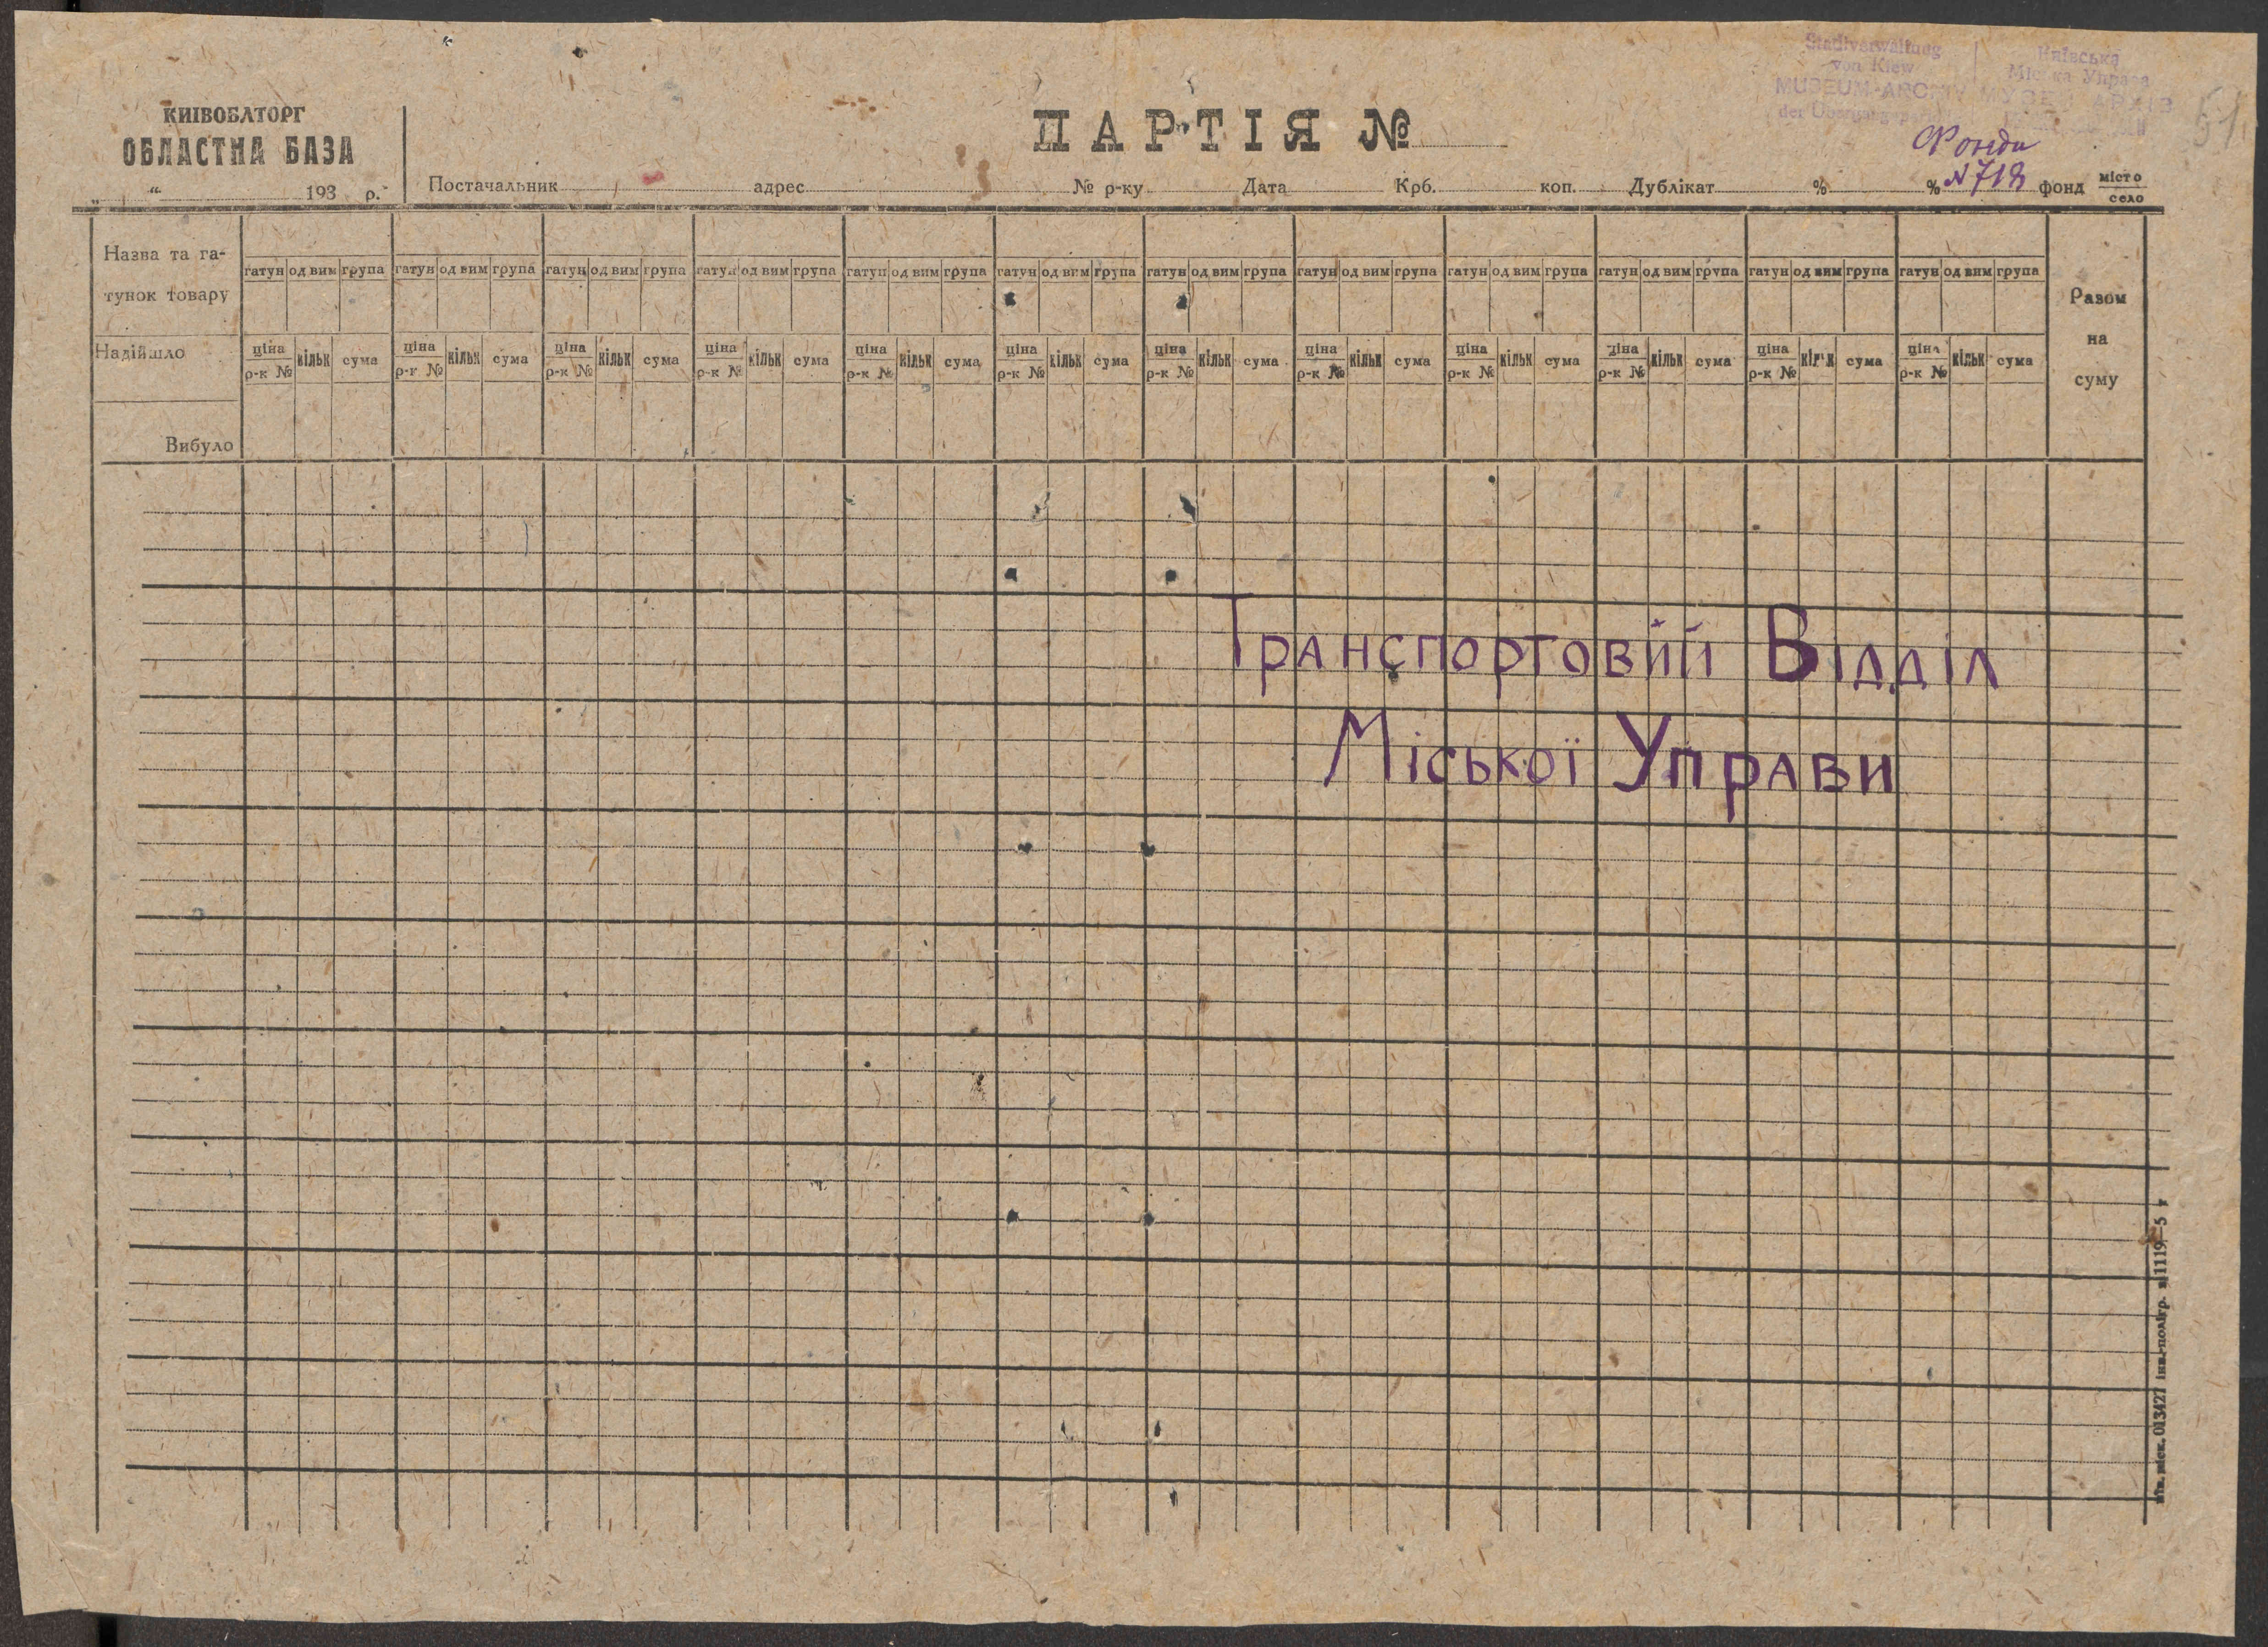 Stadtverwaltung
von Kiew
MUSEUM-ARCHIV
Київська
Міська Управа
МУЗЕЙ АРХІВ
51
КИІВОБЛТОРГ
ОБЛАСТНА БАЗА
„ “ 193 р.
ПАРТІЯ №
Фонди
N 718
Постачальник адрес № р-ку Дата Крб. коп. Дублікат % % фонд місто
село
Назва та га-
тунок товару
гатун од вим група гатун од вим група гатун од вим група гатун од вим група гатун од вим група гатун од вим група гатун од вим група гатун од вим група гатун од вим група гатун од вим група гатун од вим група гатун од вим група
Разом
на
суму
Надійшло
ціна кільк сума ціна кільк сума ціна кільк сума ціна кільк сума ціна кільк сума ціна кільк сума ціна кільк сума ціна кільк сума ціна кільк сума ціна кільк сума ціна кільк сума ціна кільк сума
р-к № р-к № р-к № р-к № р-к № р-к № р-к № р-к № р-к № р-к № р-к № р-к №
Вибуло
Транспортовий Відділ
Міської Управи
013427 1119—5